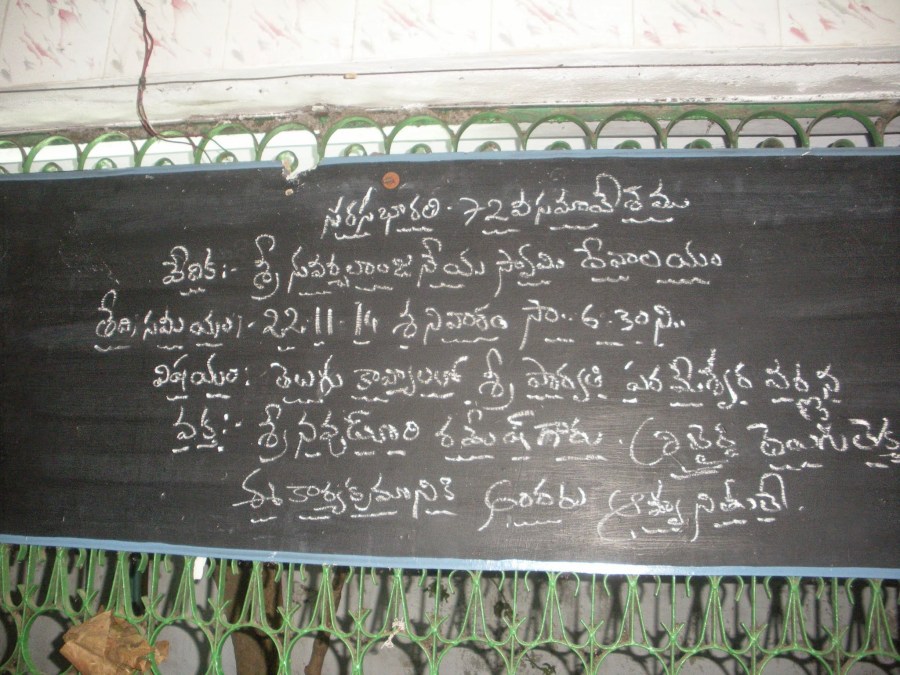 సరసభారతి - 72 వ సమావేశము
వేదిక:- శ్రీ సువర్చలాంజనేయ స్వామి దేవాలయం
తేది, సమయం,- 22-11-14 శనివారం సా.. 6-30ని..
విషయం: తెలుగు కావ్యాలలో శ్రీ పార్వతి పరమేశ్వర వర్ణన
వక్త:- శ్రీ రమేష్ గారు.
ఈ కార్యక్రమానికి అందరు ఆహ్వానితులే.